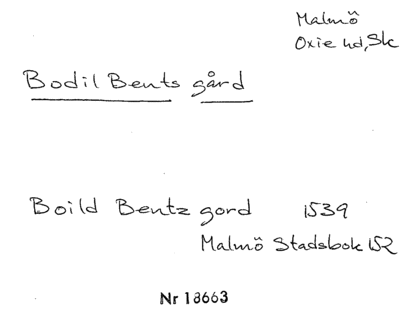 Malmö
Oxie hd, Sk
Bodil Bents gård
Boild Bentz gord 1539
Malmö Stadsbok 152
Nr 18663